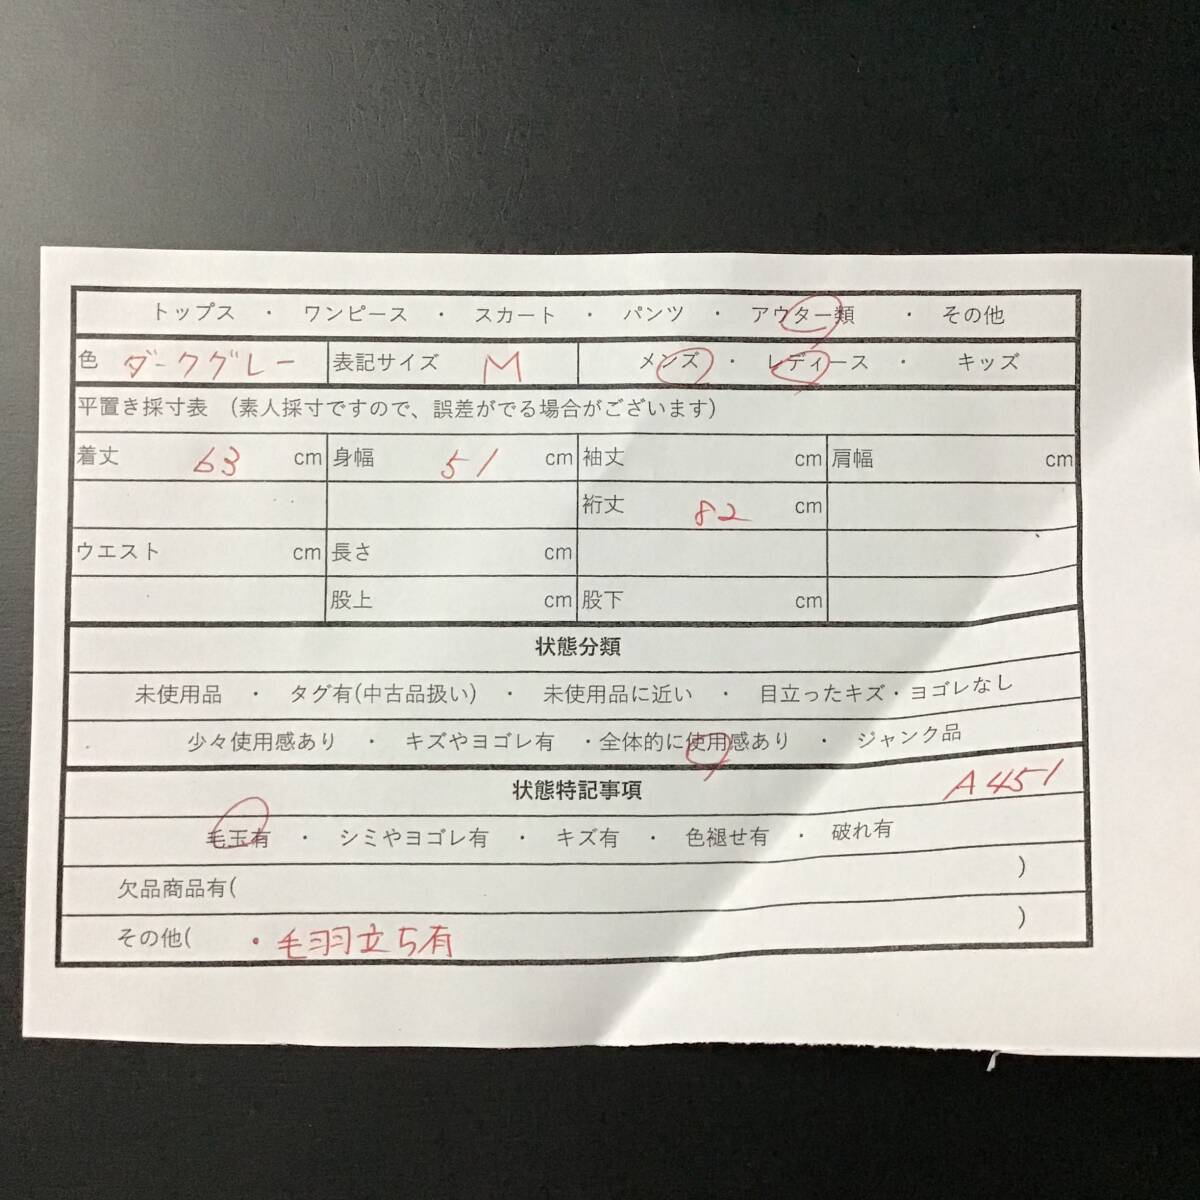 トップス ・ ワンピース ・ スカート ・ パンツ ・ アウター類 ・ その他
色 ダークグレー 表記サイズ M メンズ ・ レディース ・ キッズ
平置き採寸表 (素人採寸ですので、誤差がでる場合がございます)
着丈 63 cm 身幅 51 cm 袖丈 cm 肩幅 cm
裄丈 82 cm
ウエスト cm 長さ cm
股上 cm 股下 cm
状態分類
未使用品 ・ タグ有(中古品扱い) ・ 未使用品に近い ・ 目立ったキズ・ヨゴレなし
少々使用感あり ・ キズやヨゴレ有 ・全体的に使用感あり ・ ジャンク品
状態特記事項 A451
毛玉有 ・ シミやヨゴレ有 ・ キズ有 ・ 色褪せ有 ・ 破れ有
欠品商品有( )
その他( ・毛羽立ち有 )